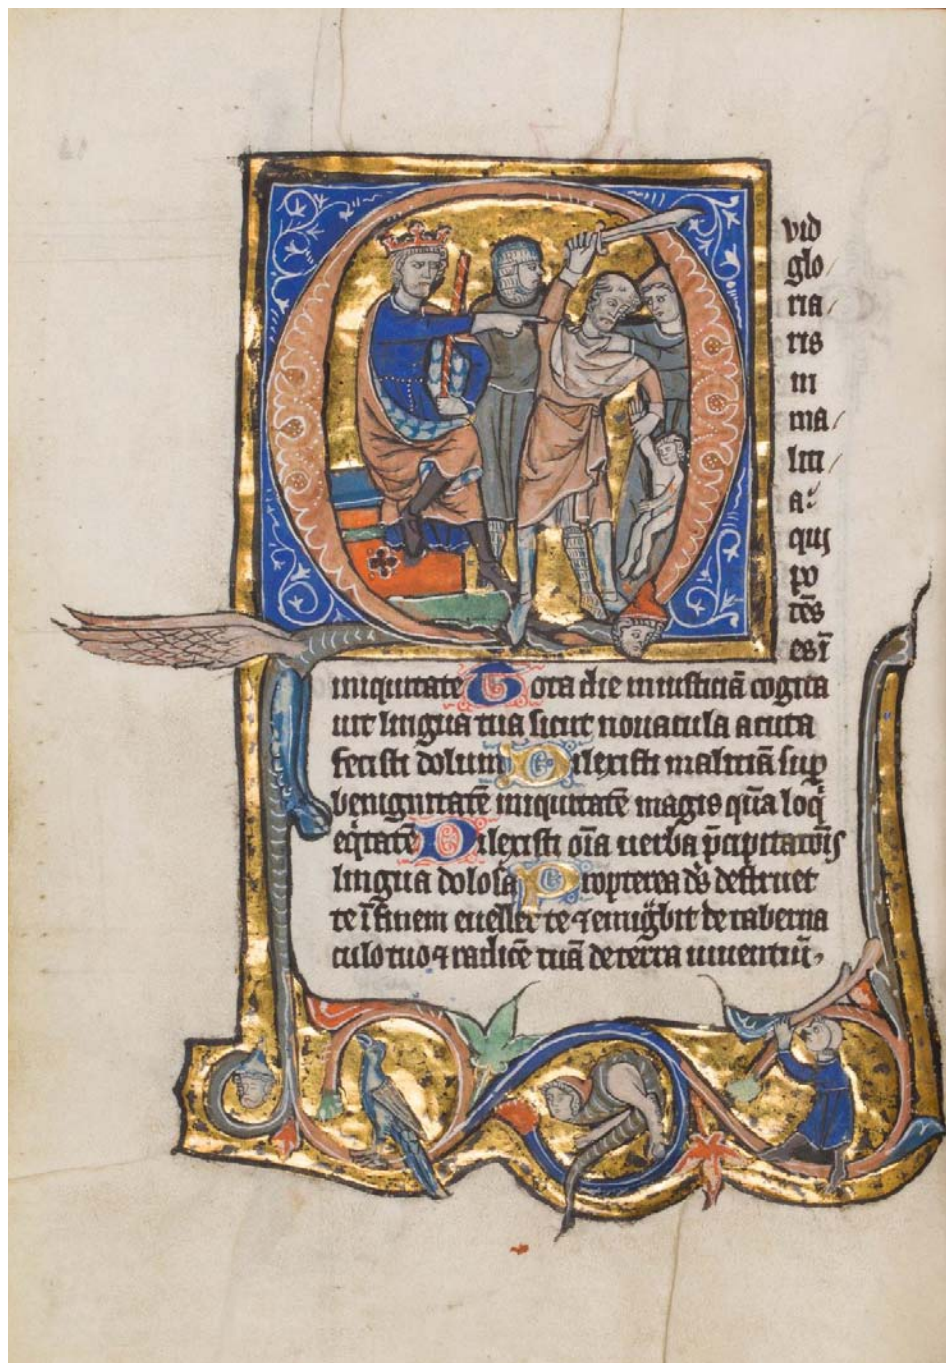 Q
vid
glo/
ria/
ris
in
ma/
liti/
a:
qui
po
tēs
es ī
iniquitate Tota die iniusticiā cogita
uit lingua tua sicut nouacula acuta
fecisti dolum Dilexisti maliciā sup
benignitatē iniquitatē magis quā loq
eqitatē Dilexisti oīa uerba pcipitatōis
lingua dolosa Propterea ds destruet
te ī finem euellet te ⁊ emigbit de taberna
culo tuo ⁊ radicē tuā de terra uiuentiū.